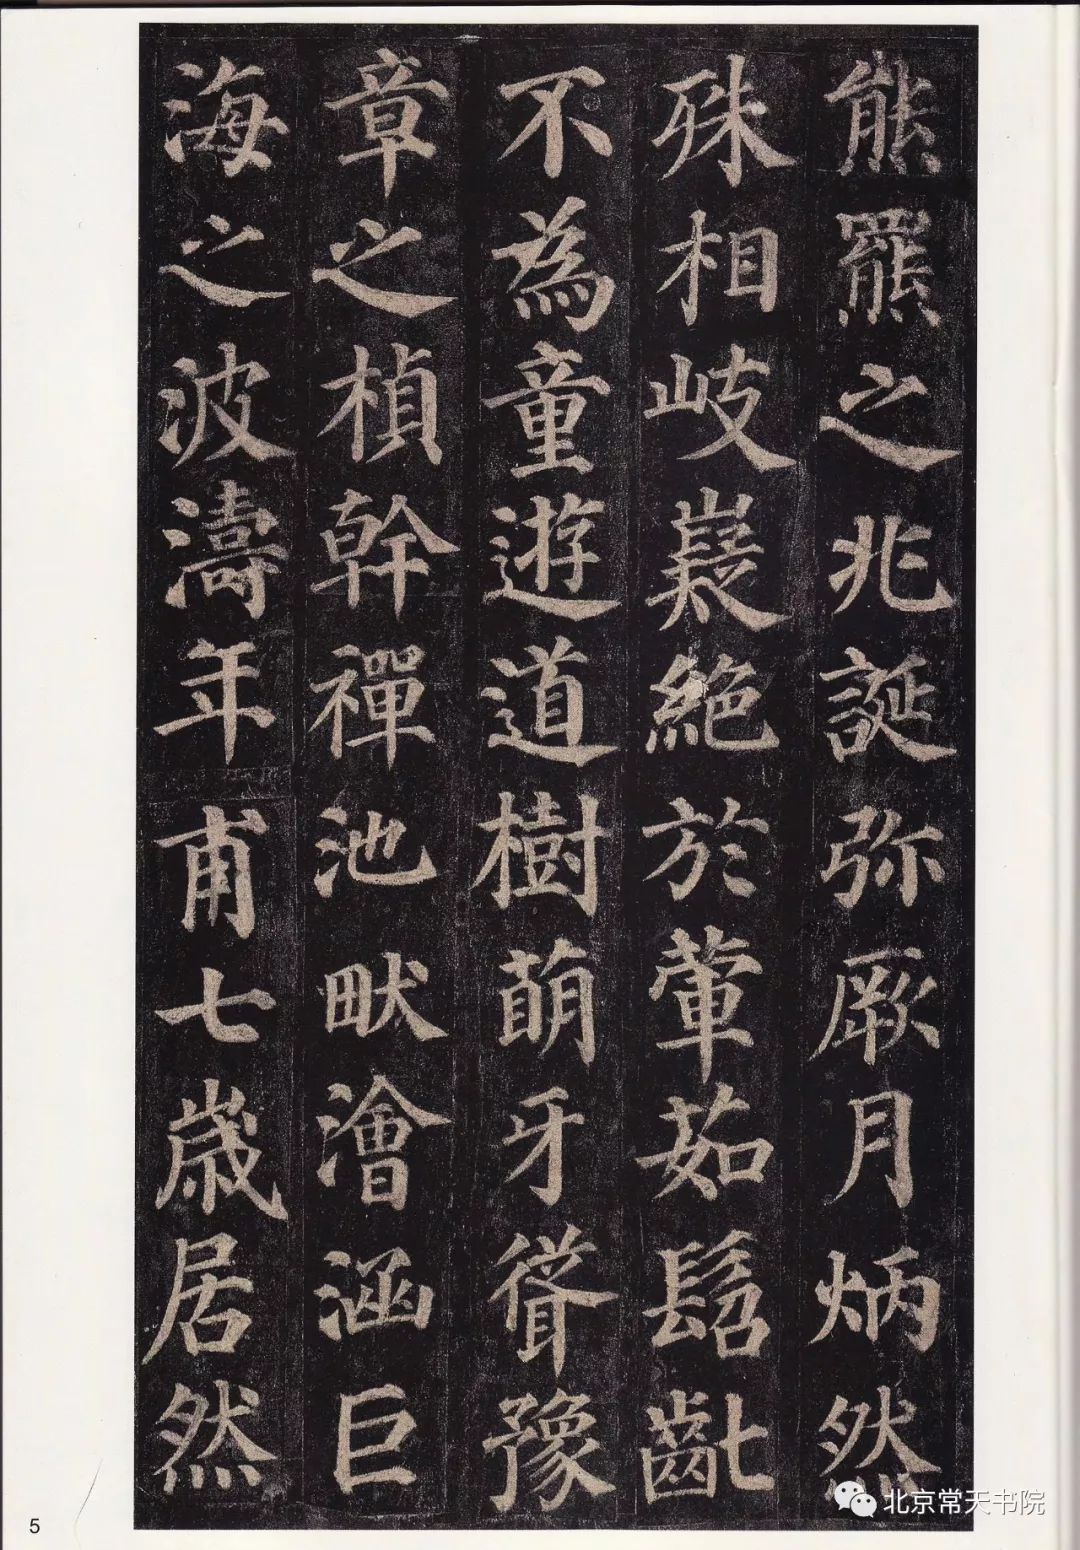 熊羆之兆誕弥厥月炳然
殊相岐嶷絕於葷茹髫齔
不為童遊道樹萌牙聳豫
章之楨幹禪池畎澮涵巨
海之波濤年甫七歲居然
5
北京常天书院